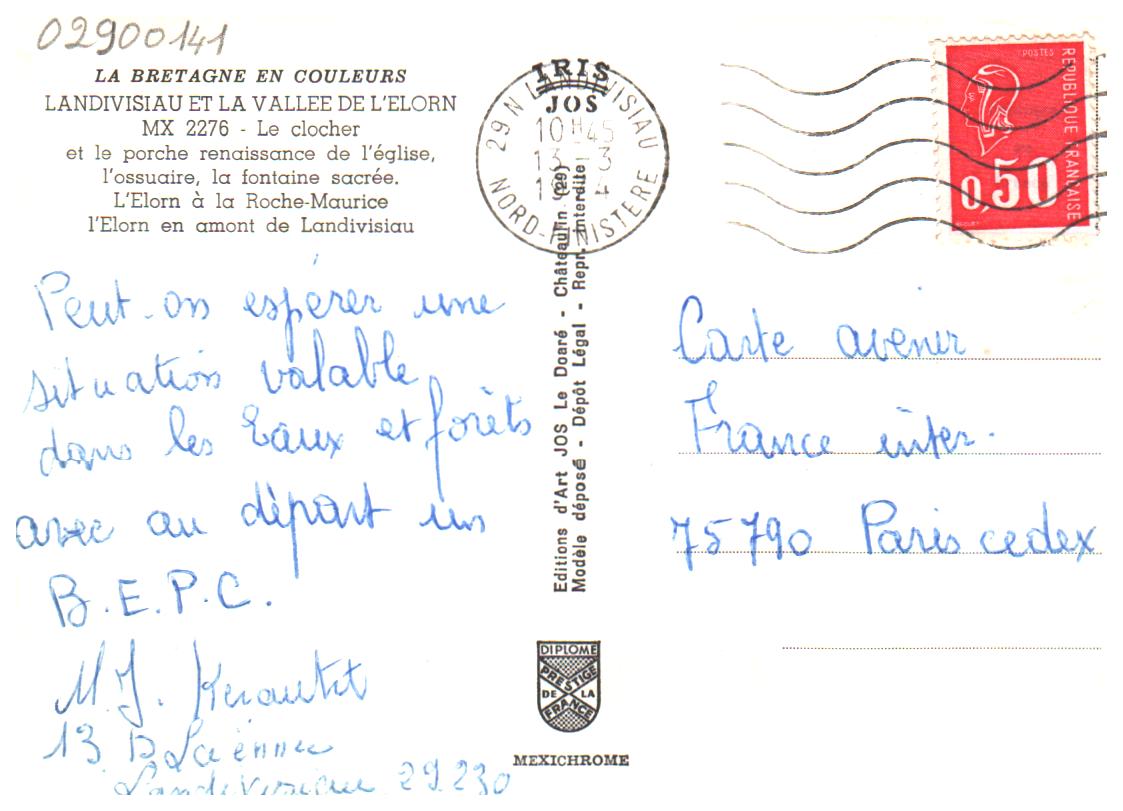 02900141
LA BRETAGNE EN COULEURS
LANDIVISIAU ET LA VALLEE DE L'ELORN
MX 2276 - Le clocher
et le porche renaissance de l'église,
l'ossuaire, la fontaine sacrée.
L'Elorn à la Roche-Maurice
l'Elorn en amont de Landivisiau
IRIS
JOS
29 N LANDIVISIAU
10 H45
13 - 3
NORD-FINISTERE
POSTES
REPUBLIQUE FRANCAISE
0,50
Peut-on espérer une
situation valable
dans les Eaux et forêts
avec au départ un
B.E.P.C.
M.J. Kerautret
13 Laënnec
Landivisiau 29.230
Editions d'Art JOS Le Doaré - Châteaulin (29)
Modèle déposé - Dépôt Légal - Repr. Interdite
Carte avenir
France inter.
75790 Paris cedex
DIPLOME
PRESTIGE
DE LA
FRANCE
MEXICHROME